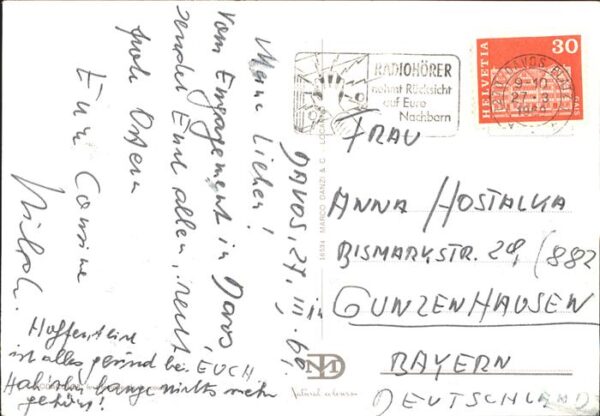 DAVOS, 27. III. 69.
Meine Lieben!
Vom Engagement in Davos,
sendet Euch allen, recht
frohe Ostern
Eure Cousine
Hoffentlich
ist alles gesund bei EUCH
lange nichts mehr
gehört!
RADIOHÖRER
nehmt Rücksicht
auf Eure
Nachbarn
HELVETIA
30
DAVOS
27.3
FRAU
ANNA HOSTALKA
BISMARKSTR. 28, (882
GUNZENHAUSEN
BAYERN
DEUTSCHLAND
MARCO GANZI & C.
Natural colour